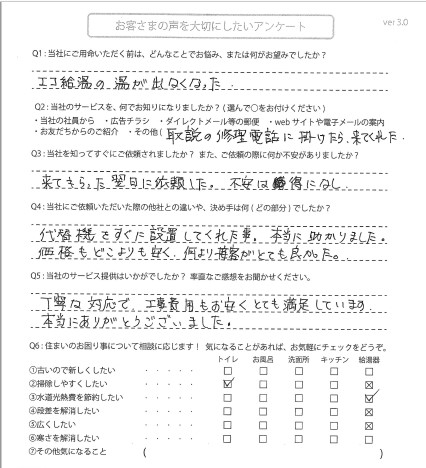 お客さまの声を大切にしたいアンケート
ver 3.0
Q1:当社にご用命いただく前は、どんなことでお悩み、または何がお望みでしたか?
エコ給湯の湯が出なくなった.
Q2:当社のサービスを、何でお知りになりましたか?(選んで○をお付けください)
・当社の社員から ・広告チラシ ・ダイレクトメール等の郵便 ・webサイトや電子メールの案内
・お友だちからのご紹介 ・その他( 取説の修理電話に掛けたら、来てくれた.
Q3:当社を知ってすぐにご依頼されましたか? また、ご依頼の際に何か不安がありましたか?
来てもらった翌日に依頼した。不安は特になし.
Q4:当社にご依頼いただいた際の他社との違いや、決め手は何(どの部分)でしたか?
代替機をすぐに設置してくれた事。本当に助かりました。
価格もどこよりも安く、何より接客がとても良かった。
Q5:当社のサービス提供はいかがでしたか? 率直なご感想をお聞かせください。
丁寧な対応で、工事費用もお安くとても満足しています.
本当にありがとうございました。
Q6:住まいのお困り事について相談に応じます! 気になることがあれば、お気軽にチェックをどうぞ。
トイレ お風呂 洗面所 キッチン 給湯器
①古いので新しくしたい ・・・・・ □ □ □ □ □
②掃除しやすくしたい ・・・・・ ☑ □ □ □ ☒
③水道光熱費を節約したい ・・・・・ □ □ □ □ ☑
④段差を解消したい ・・・・・ □ □ □ □ ☒
⑤広くしたい ・・・・・ □ □ □ □ ☒
⑥寒さを解消したい ・・・・・ □ □ □ □ □
⑦その他気になること ( )